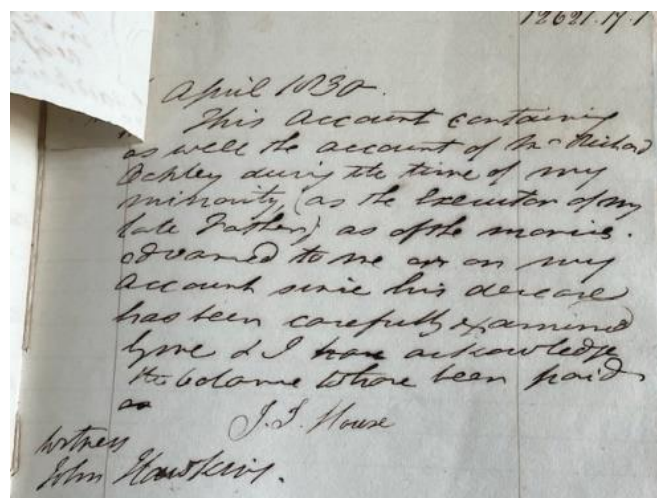 12621.17.1
April 1830.
This Account containing
as well the account of Mr Richard
Ockley during the time of my
minority (as the Executor of my
late Father) as of the monies
advanced to me or on my
Account since his decease
has been carefully examined
by me & I acknowledge
the balance to have been paid
J. I. House
Witness
John Hawkins.